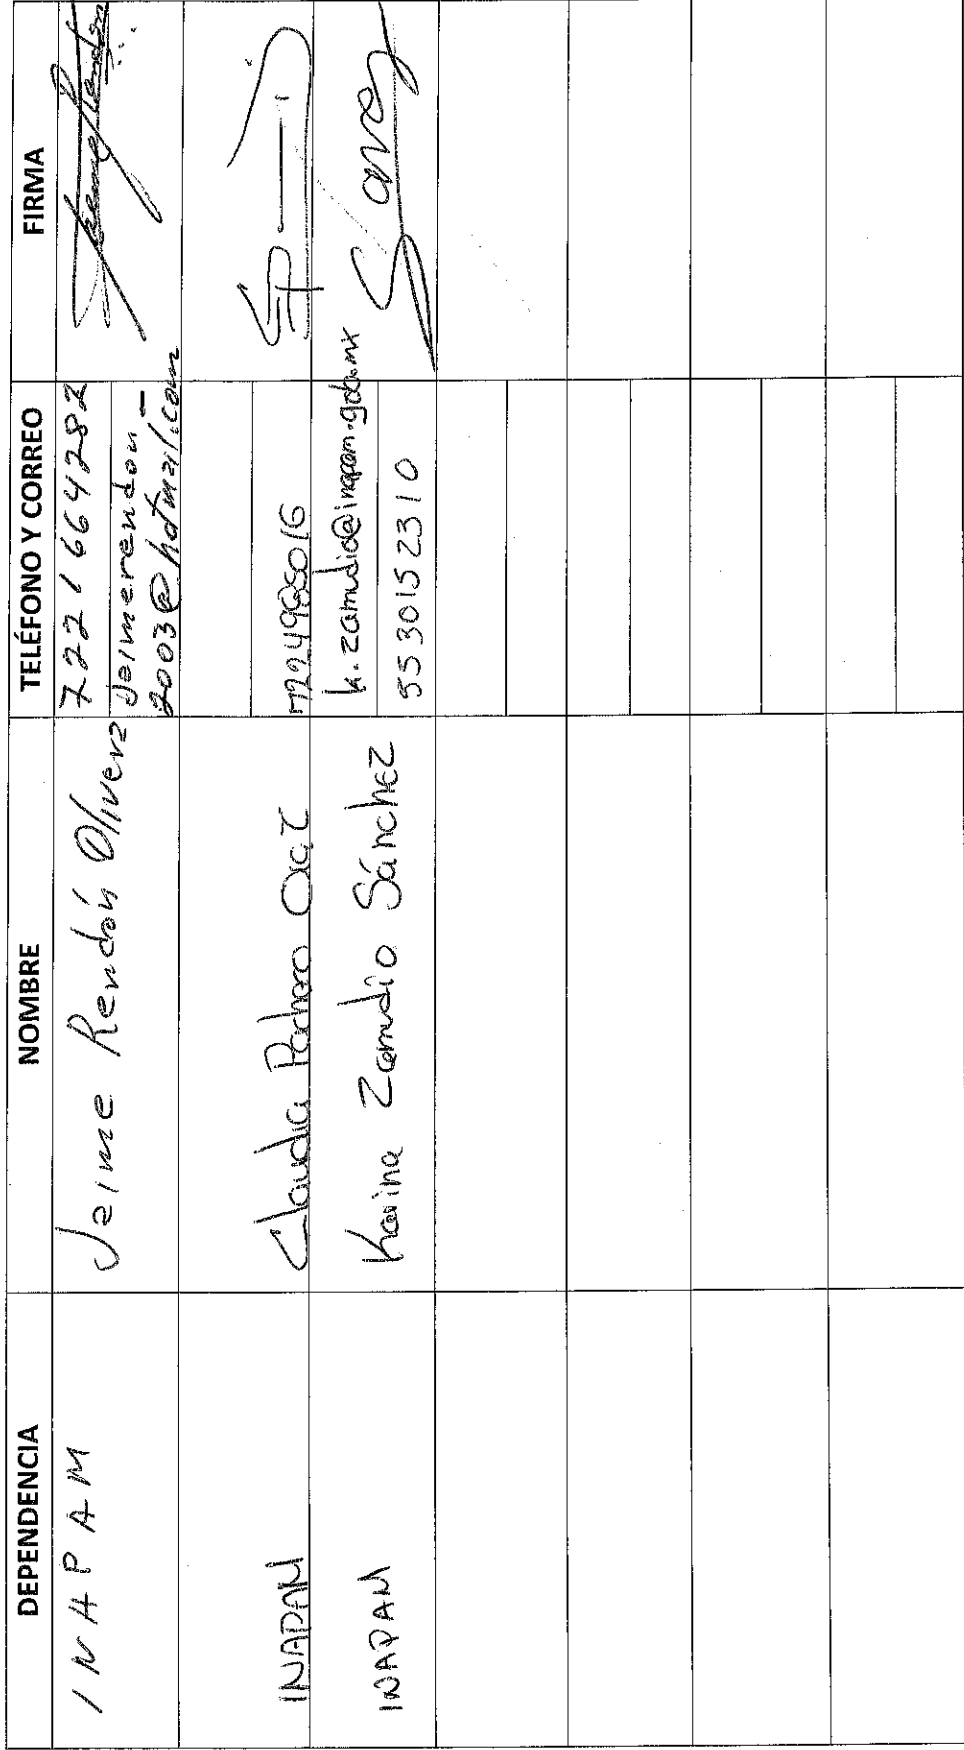 DEPENDENCIA NOMBRE TELÉFONO Y CORREO FIRMA
INAPAM Jaime Rendón Olivera 7221664282
jaimerendon_
2003@hotmail.com
INAPAM Claudia Pacheco 
INAPAM Karina Zamudio Sánchez k.zamudio@inapam.gob.mx
5530152310